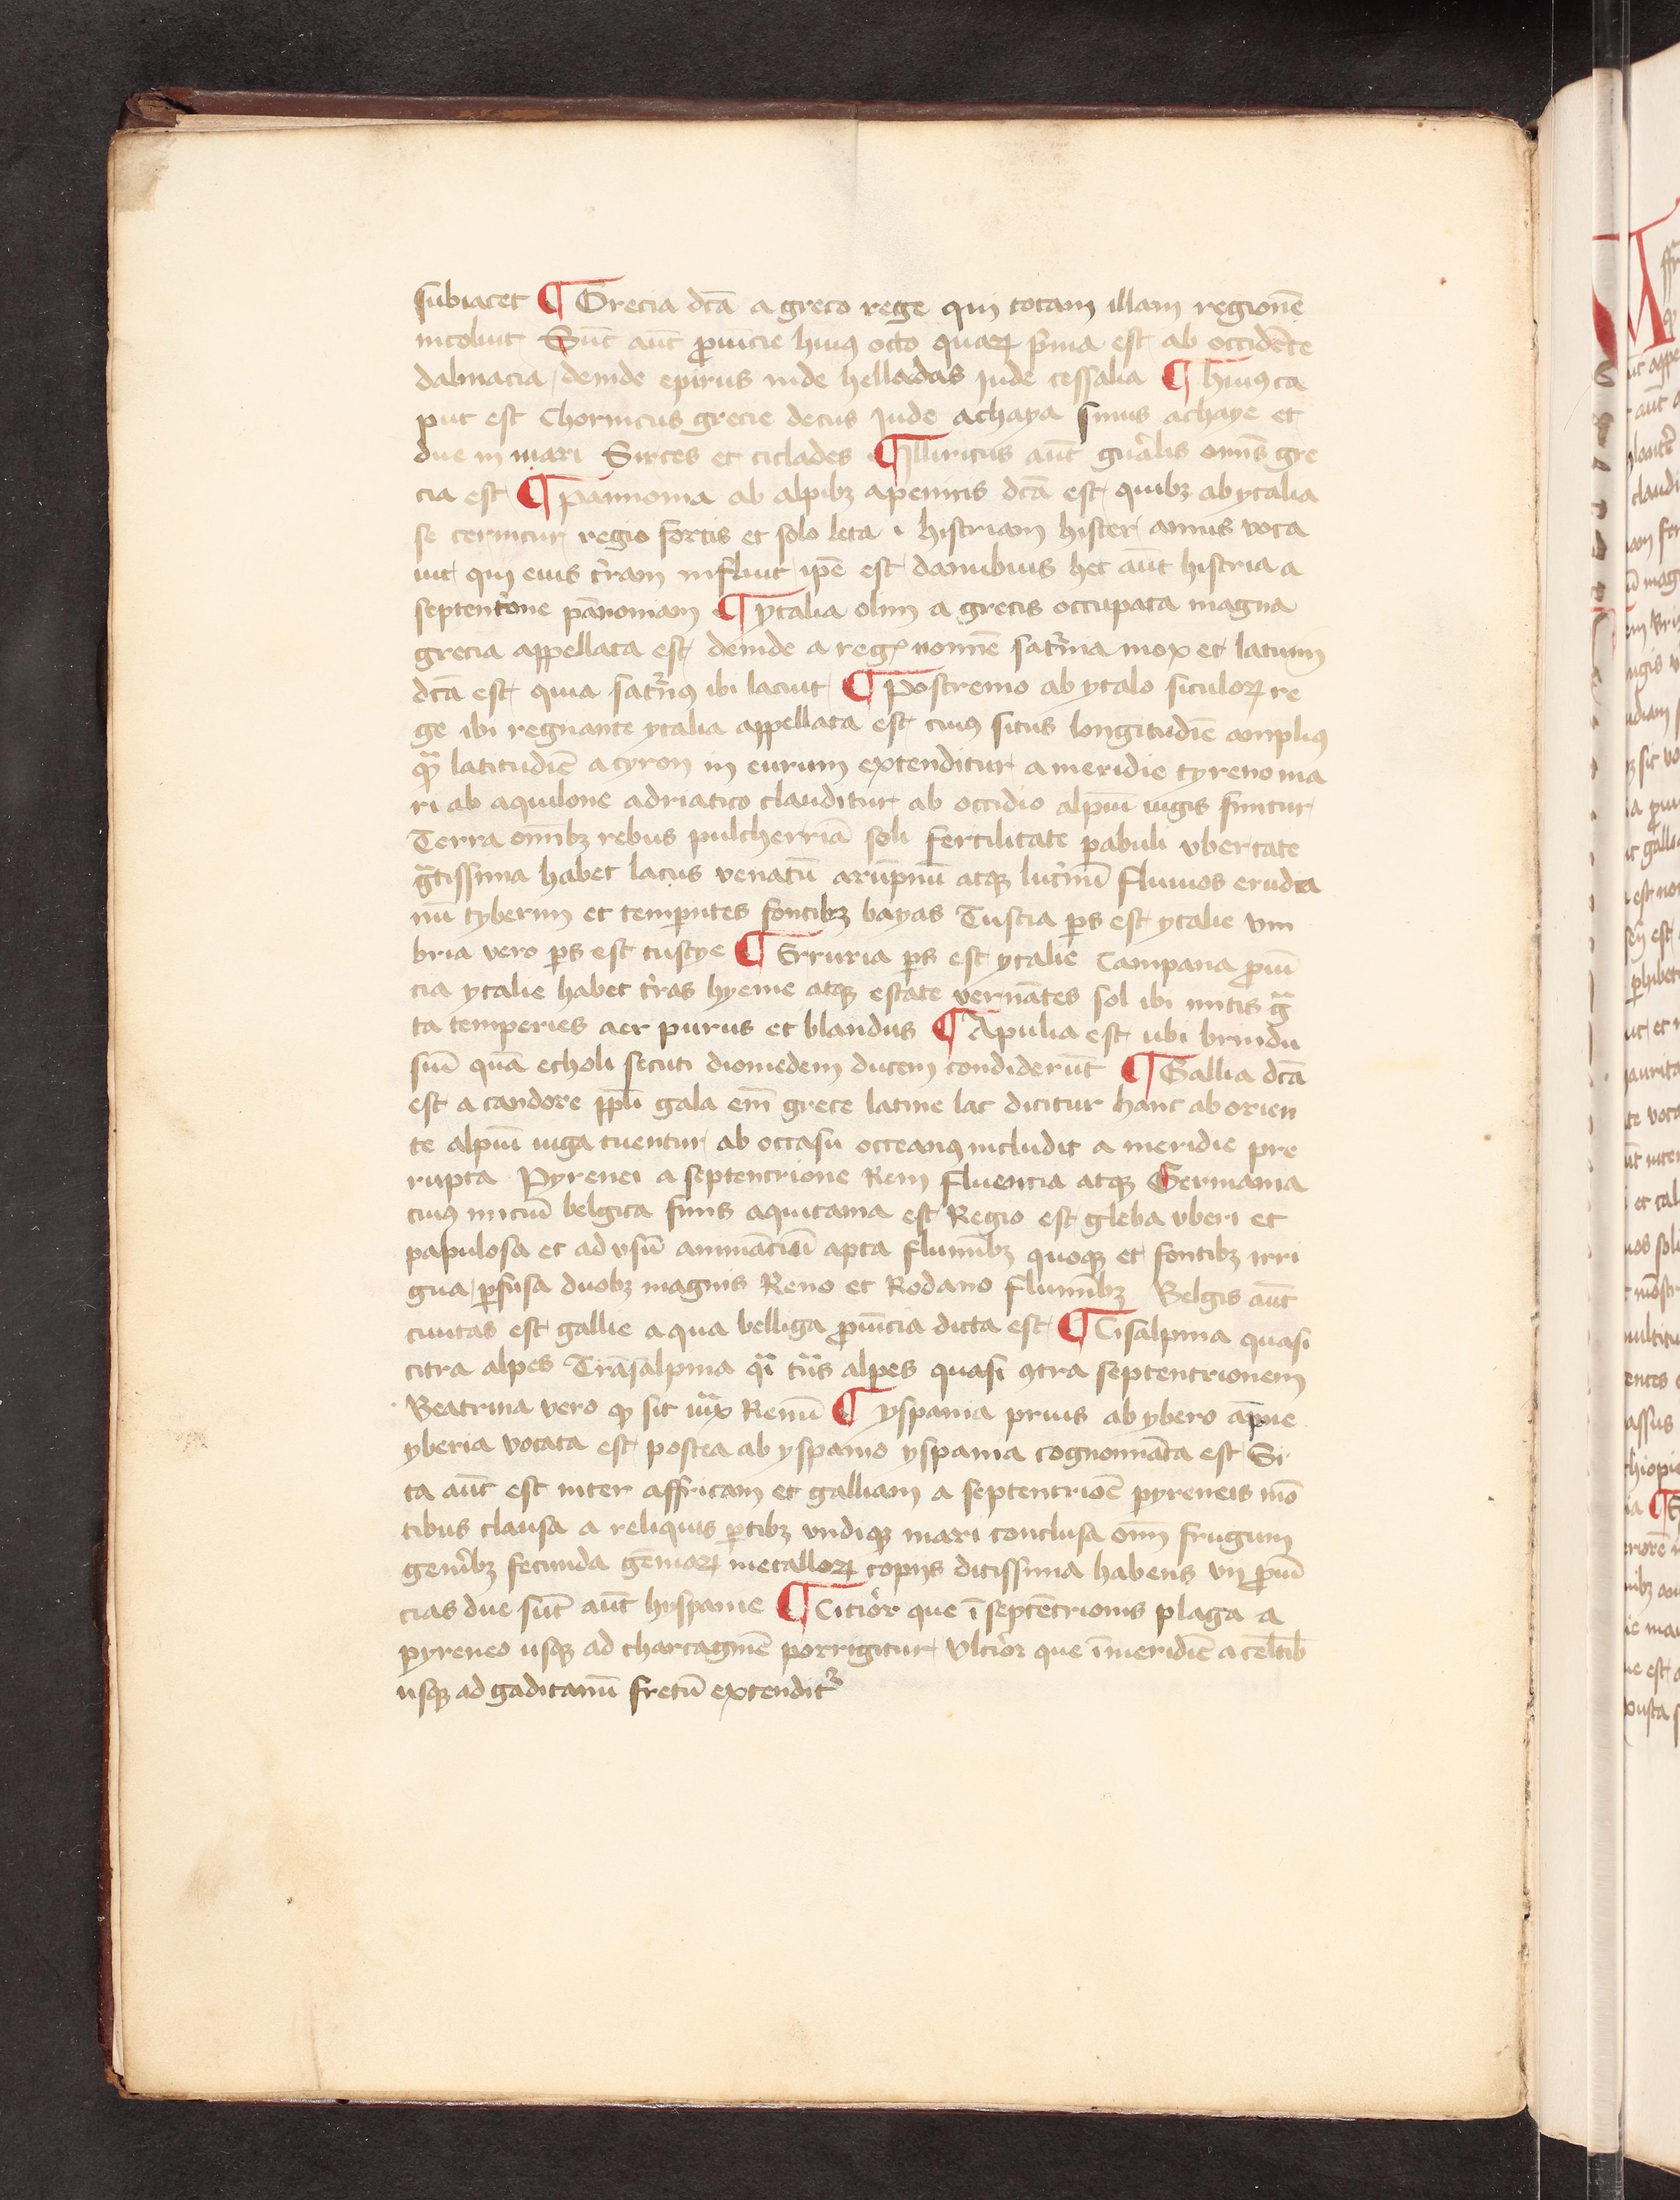 subiacet ¶ Grecia dc̄a a greco rege qui totam illam regionē
incoluit Sūt aūt ꝓuicie huiꝰ octo quaꝝ p̄ma est ab occidēte
dalmacia, deinde epirus inde helladas Inde tessalia ¶ huiꝰ ca
put est Chorintus grecie decus Inde achaya sinus achaye et
due in mari Sirtes et ciclades ¶ Illiricus aūt gūalis om̄is gre
cia est ¶ Pannonia ab alpibꝫ apeninis dc̄a est quibꝫ ab ytalia
se cernitur regio fortis et solo leta histriam hister amnis voca
uit qui eius t̄ram influit ip̄e est danubius hec aūt histria a
septent̄one pānoniam ¶ ytalia olim a grecis occupata magna
grecia appellata est deinde a regꝭ nomīe sat̄na mox et latium
dc̄a est quia sat̄nꝰ ibi latuit ¶ Postremo ab ytalo siculoꝝ re
ge ibi regnante ytalia appellata est cuiꝰ situs longitudīe ampliꝰ
qᷓ latitudīe a cyron in eurum extenditur a meridie tyreno ma
ri ab aquilone adriatico clauditur ab occidio alpiū iugis finitur
Terra om̄ibꝫ rebus pulcherriā soli fertilitate pabuli vbertate
gᷓtissima habet lacus venatū arūpnū atqꝫ lut̄nū fluuios erida
nū tyberim et temperntes fontibꝫ bayas Tuscia ꝑs est ytalie vm
bria vero ꝑs est tuscye ¶ Etruria ꝑs est ytalie Campana ꝓuī
cia ytalie habet t̄ras hyeme atqꝫ estate vernātes sol ibi mitis gᷓ
ta temperies aer purus et blandus ¶ Apulia est ubi brindu
siū quā etholi secuti diomedem ducem condiderūt ¶ Gallia dc̄a
est a candore ppl̄i gala em̄ grece latine lac dicitur hanc ab orien
te alpiū iuga tuentur ab occasu occeanꝰ includit a meridie pre
rupta Pyrenei a septentrione Reni fluencia atqꝫ Germania
cuiꝰ iniciū belgica finis aquitania est Regio est gleba vberi et
papulosa et ad vsū animāciū apta fluminībꝫ quoqꝫ et fontibꝫ irri
gua, ꝑfusa duobꝫ magnis Reno et Rodano fluminībꝫ Belgis aūt
ciuitas est gallie a qua belliga ꝓuīcia dicta est ¶ Cisalpina quasi
citra alpes Trāsalpina qͣi tͣns alpes quasi ꝯtra septentrionem
Beatrina vero qꝫ sit iuxͣ Renū ¶ yspania prius ab ybero āpne
yberia vocata est postea ab yspano yspania cognomināta est Si
ta aūt est inter affricam et galliam a septentriōe pyreneis mō
tibus clausa a reliquis ꝑtibꝫ vndiqꝫ mari conclusa om̄i frugum
gen̄ibꝫ fecunda gēmaꝝ metalloꝝ copijs ditissima habens vij ꝓuī
cias due sūt aūt hyspanie ¶ Citior que ī septētrionis plaga a
pyreneo usqꝫ ad chartaginē porrigitur Vlterior que ī meridiē a celtib̄
usqꝫ ad gaditanū fretū extendit᷑